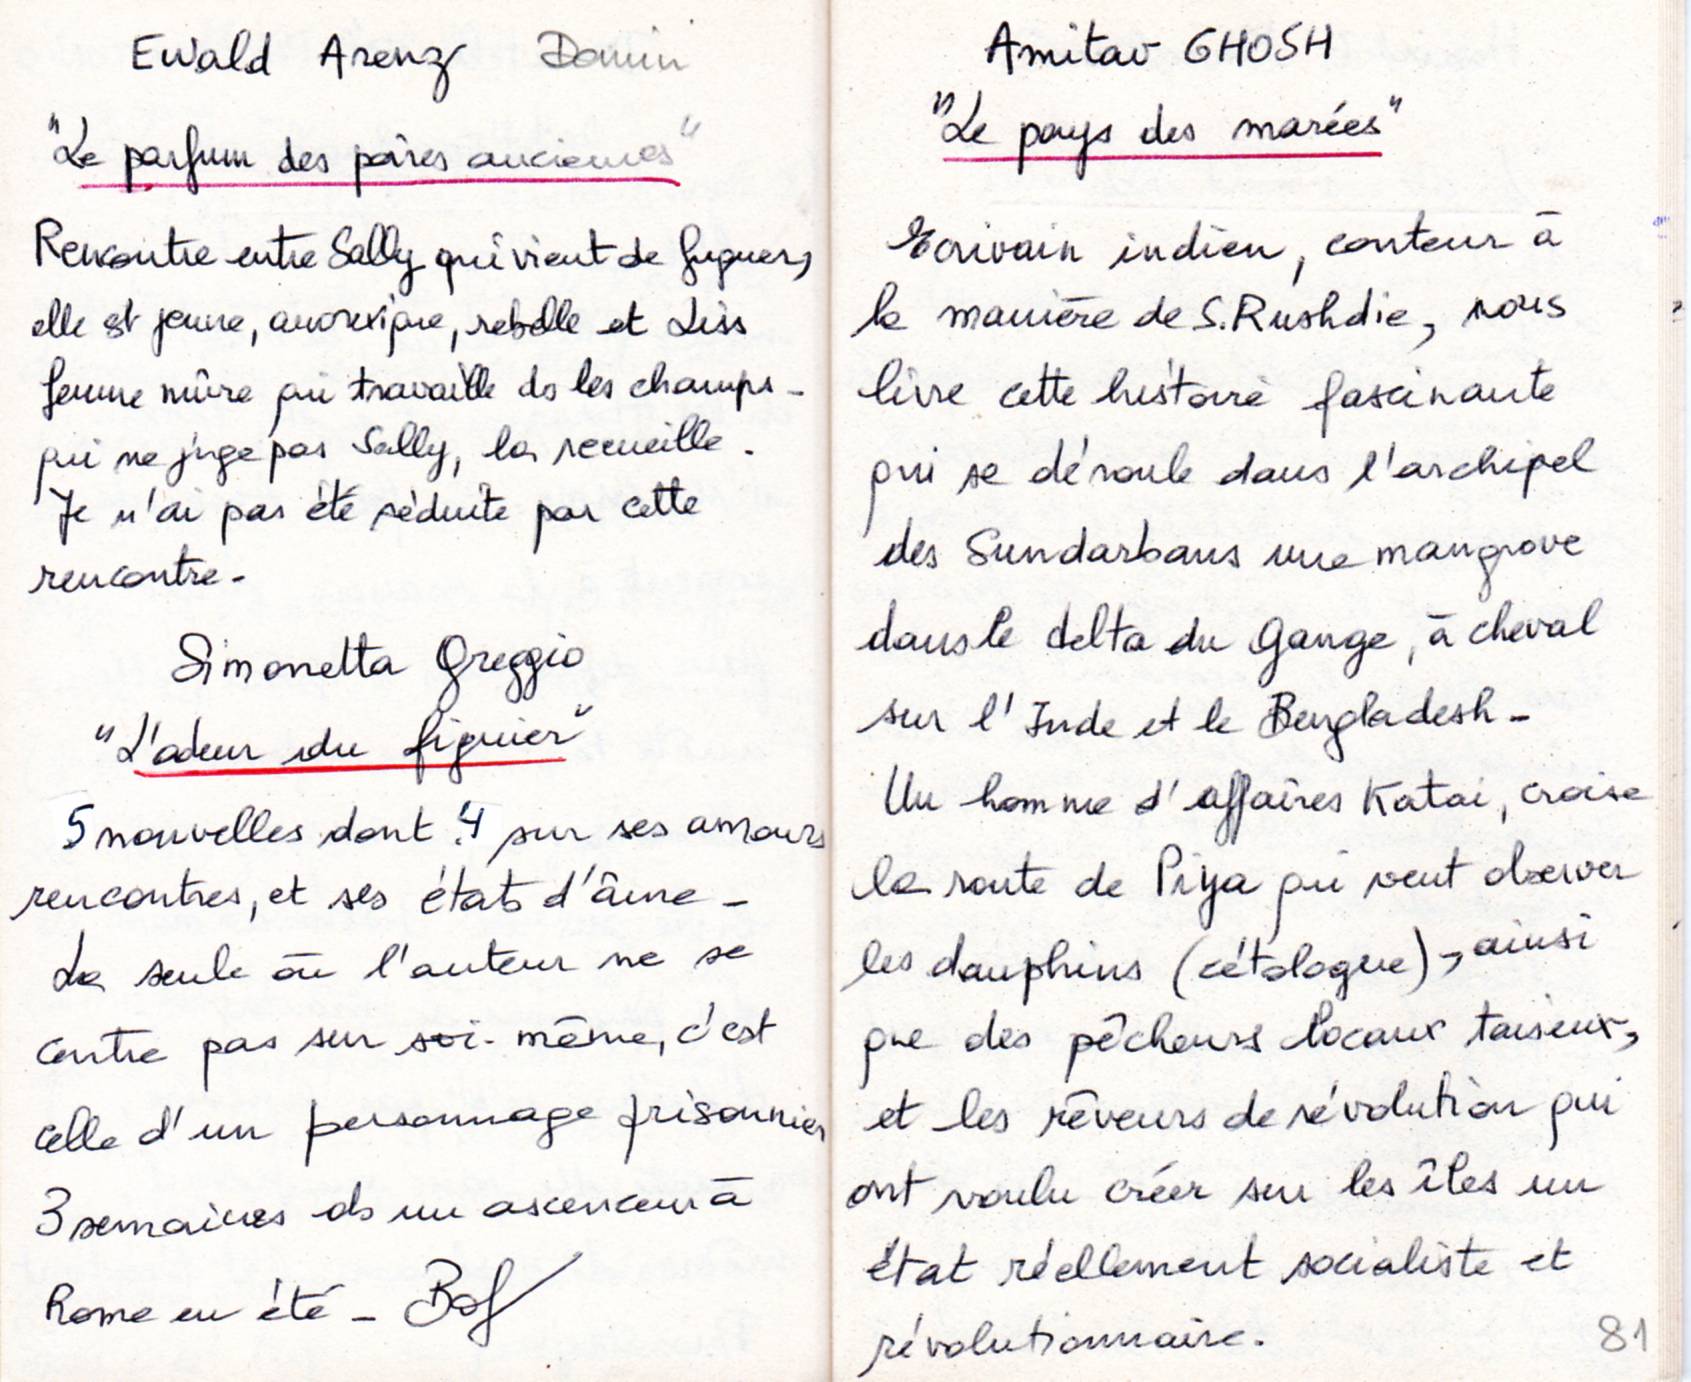 Ewald Arenz Domin
"Le parfum des poires anciennes"
Rencontre entre Sally qui vient de fuguer,
elle est jeune, anorexique, rebelle et Liss
femme mûre qui travaille ds les champs -
qui ne juge pas Sally, la recueille.
Je n'ai pas été séduite par cette
rencontre -
Simonetta Greggio
"L'odeur du figuier"
5 nouvelles dont 4 sur ses amours
rencontres, et ses états d'âme -
La seule où l'auteur ne se
centre pas sur soi-même, c'est
celle d'un personnage prisonnier
3 semaines ds un ascenceur à
Rome en été - Bof
Amitav GHOSH
"Le pays des marées"
Ecrivain indien, conteur à
la manière de S. Rushdie, nous
livre cette histoire fascinante
qui se déroule dans l'archipel
des Sundarbans une mangrove
dans le delta du Gange, à cheval
sur l'Inde et le Bengladesh -
Un homme d'affaires Katai, croise
la route de Piya qui veut observer
les dauphins (cétologue), ainsi
que des pêcheurs locaux taiseux,
et les rêveurs de révolution qui
ont voulu créer sur les îles un
état réellement socialiste et
révolutionnaire.
81